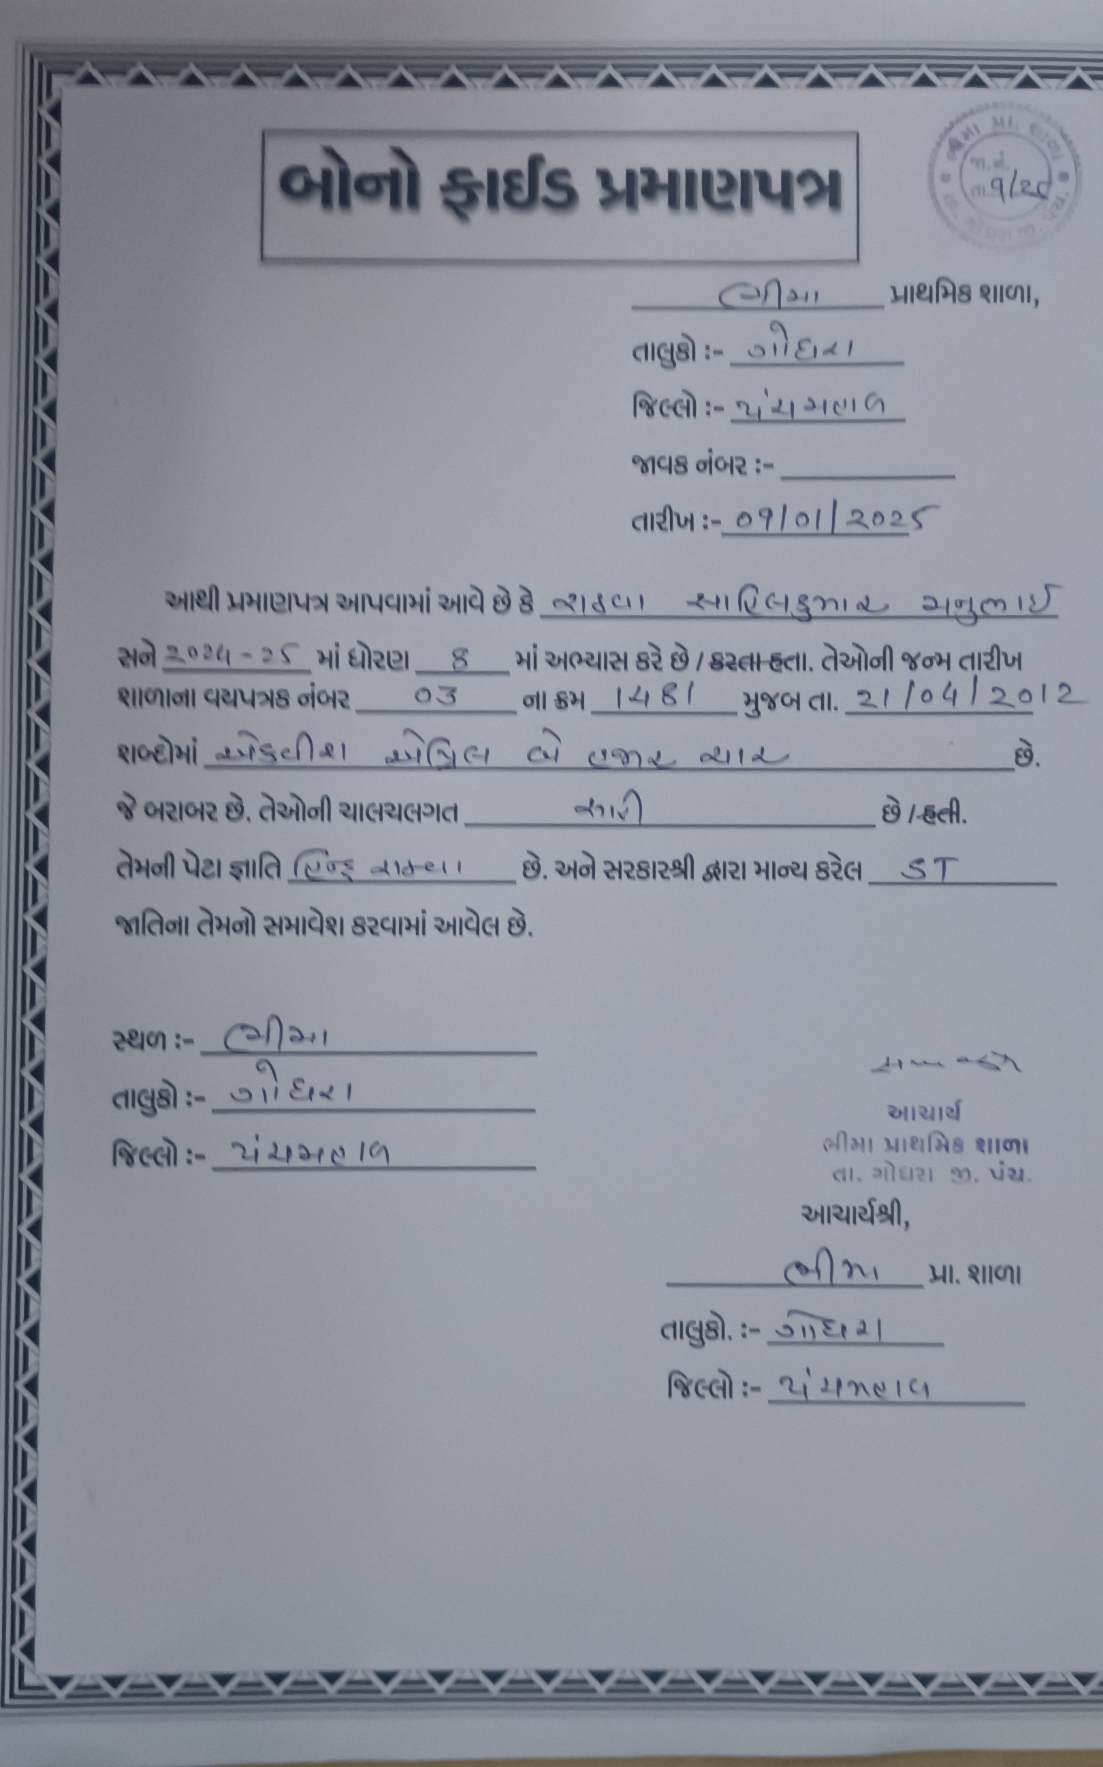 બોનો ફાઈડ પ્રમાણપત્ર
ભીમા પ્રા. શાળા
જા.નં.
તા. ૧/૨૦
ભીમા પ્રાથમિક શાળા,
તાલુકો :- ગોધરા
જિલ્લો :- પંચમહાલ
જાવક નંબર :-
તારીખ :- ૦૧/૦૧/૨૦૨5
આથી પ્રમાણપત્ર આપવામાં આવે છે કે રાઠવા સાહિલકુમાર મનુભાઈ
સને ૨૦૨૪-૨5 માં ધોરણ 8 માં અભ્યાસ કરે છે / કરતા હતા. તેઓની જન્મ તારીખ
શાળાના વયપત્રક નંબર 03 ના ક્રમ 1481 મુજબ તા. 21/04/2012
શબ્દોમાં એકવીશ એપ્રિલ બે હજાર બાર છે.
જે બરાબર છે. તેઓની ચાલચલગત સારી છે / હતી.
તેમની પેટા જ્ઞાતિ હિન્દુ રાઠવા છે. અને સરકારશ્રી દ્વારા માન્ય કરેલ ST
જાતિના તેમનો સમાવેશ કરવામાં આવેલ છે.
સ્થળ :- ભીમા
તાલુકો :- ગોધરા
જિલ્લો :- પંચમહાલ
આચાર્ય
ભીમા પ્રાથમિક શાળા
તા. ગોધરા જી. પંચ.
આચાર્યશ્રી,
ભીમા પ્રા. શાળા
તાલુકો. :- ગોધરા
જિલ્લો :- પંચમહાલ